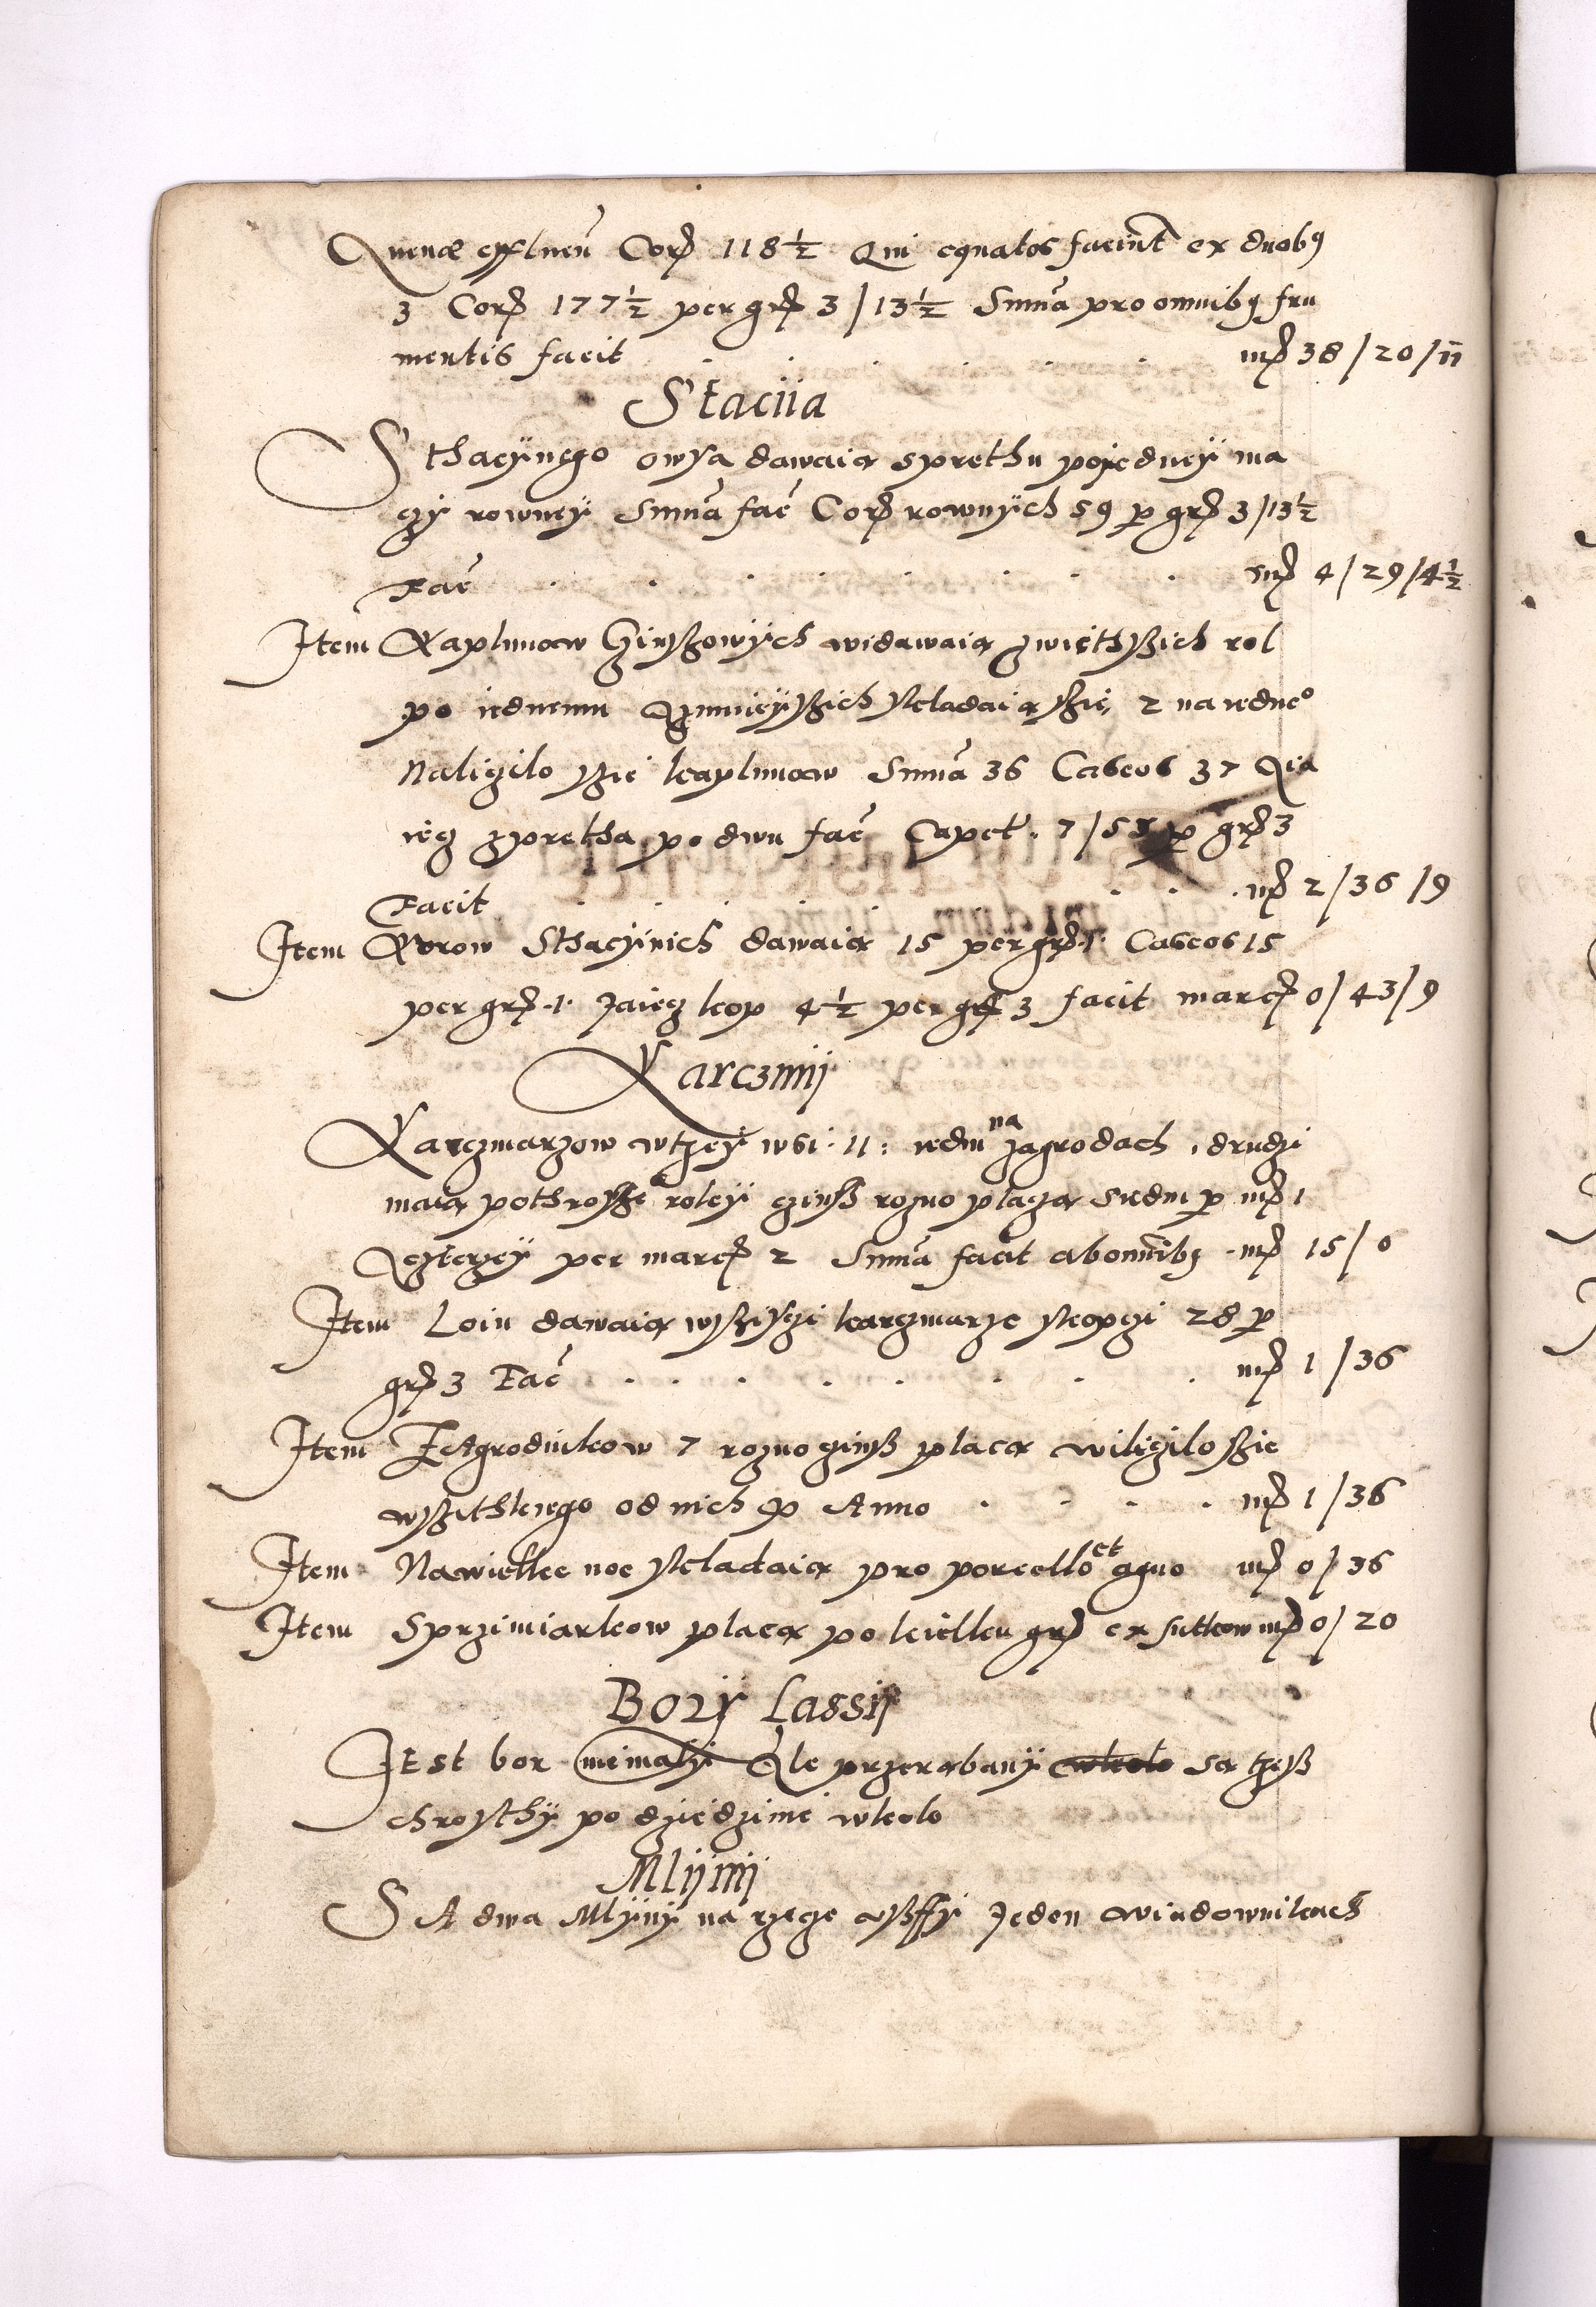 Quenae efflueñ Corꝭ 118½ Qui equatos faciunt ex duobꝰ
3 Corꝭ 177½ per grꝭ 3/13½ Sum̃a pro omnibꝰ fru
mentis facit . . . . . mꝭ 38/20/11
Staciia
Sthacÿnego owsa dawaią sprethu pojednej mia
rzÿ rownej Sum̃a fac̃ Corꝭ rownÿch 59 ꝑ grꝭ 3/13½
Fac̃ . . . . . . . . mꝭ 4/29/4½
Item Kaplunow Czinßowÿch widawaią zwiethßich rol
po iednemu Zmnieÿßich skladaią ßie 2 na iedne°
Naliczilo ßie kaplunow Sum̃a 36 Caseos 37 Jia
iecz zpretha po dwu fac̃ Capet. 7/55 ꝑ grꝭ 3
Facit . . . . . . mꝭ 2/36/9
Item Kurow Sthacÿinich dawaią 15 per grꝭ 1 Caseos 15
per grꝭ .1. Jaiecz kop 4½ per grꝭ 3 facit marcꝭ 0/43/9
Karczmij
Karczmarzow wtzeÿ wsi .11. iedni na zagrodach , drudzi
maią pothrosze roleÿ czinß rozno placzą siedm ꝑ mꝭ 1
Czterzeÿ per marcꝭ 2 Sum̃a facit ab omnibꝰ mꝭ 15/0
Item Loiu dawaią wßisczi karczmarze skopczi 28 ꝑ
grꝭ 3 Fac̃ . . . . . . . . mꝭ 1/36
Item ZAgrodnikow 7 rozno czinß placą wiliczilo ßie
wßithkiego od nich ꝑ Anno . . . . mꝭ 1/36
Item Nawielkę noc skladaią pro porcello et agno mꝭ 0/36
Item Sprzimiarkow placą po kielku grꝭ ex suttow mꝭ 0/20
Borÿ Lassij
JEst bor niemalÿ Ale przerąbanÿ wkolo Są tzeß
chrosthÿ po dziedzinie wkolo
Mlijnij
SA dwa Mlÿnÿ na rzecze Jeden windownikach